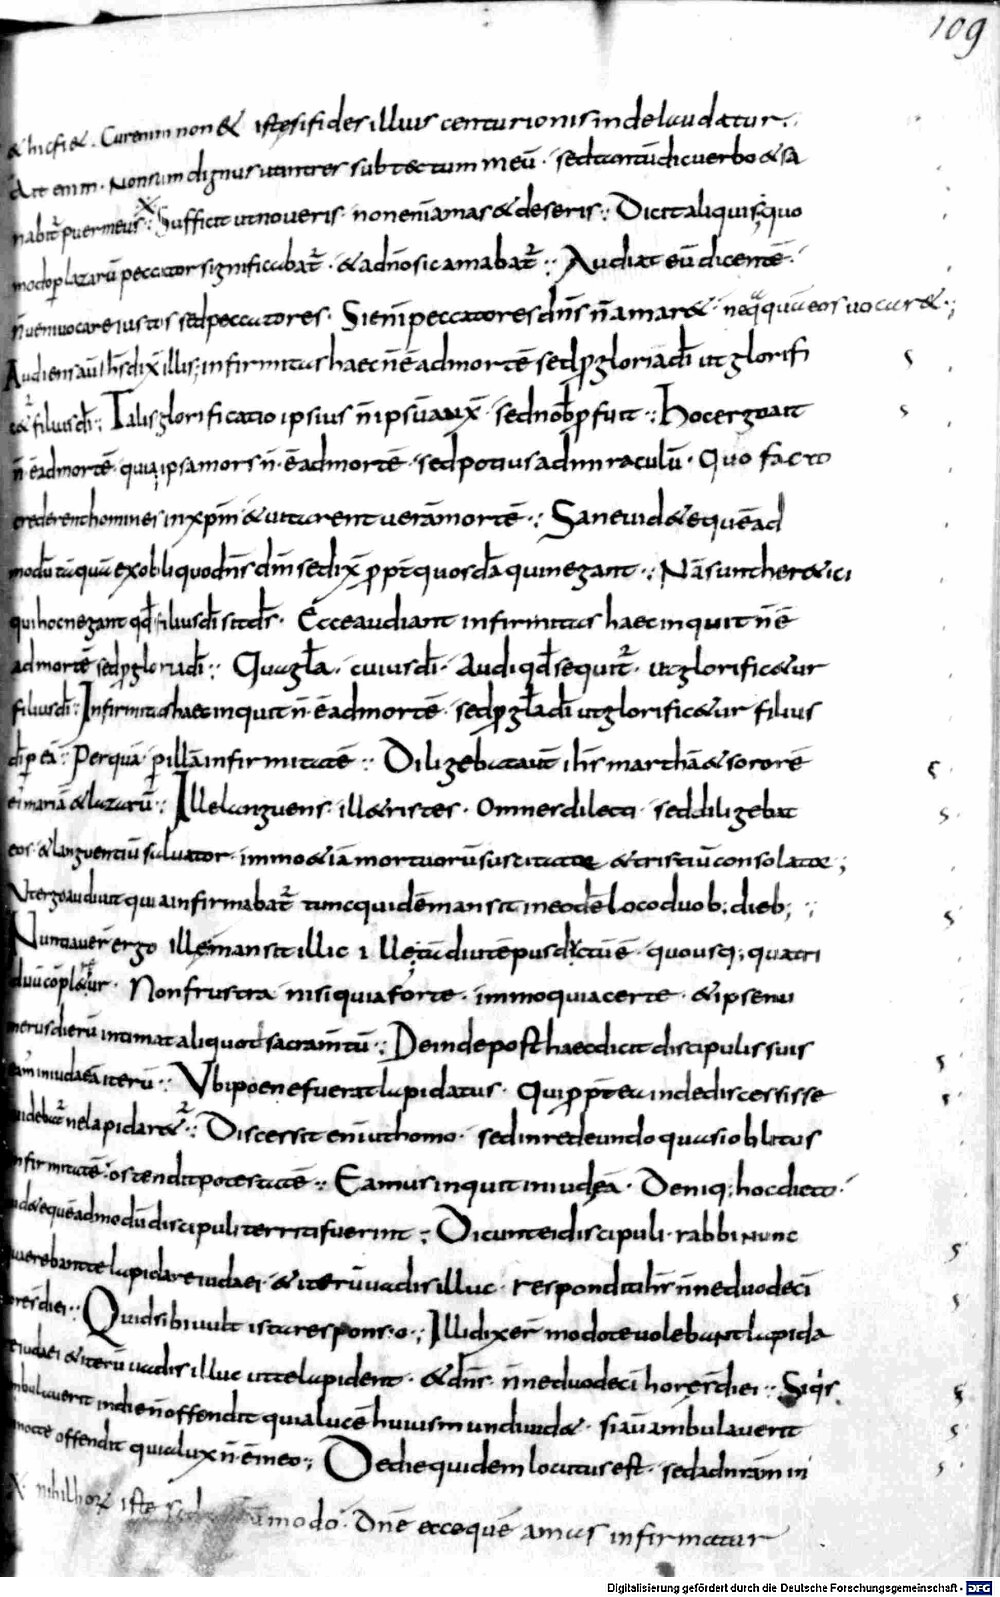 109
& hic fi&. Cur enim non & iste si fides illius centurionis inde laudatur.
Ait enim. Non sum dignus ut intres sub tectum meū. sed tantū dic uerbo & sa
nabit᷑ puer meus: Sufficit ut noueris. non enī amas & deseris: Dicit aliquis; quo
modo p lazarū peccator significabat᷑. & a dn̄o sic amabat᷑: Audiat eū dicentē.
n̄ ueni uocare iustos sed peccatores. Si enī peccatores dn̄s n̄ amar&. neq;
Audiens aū ihs dix̄ illis; infirmitas haec n̄ ē ad mortē sed p gloriā dī ut glorifi
c& filius dī: Talis glorificatio ipsius n̄ ipsū aux̄. sed nob p̄fuit: Hoc ergo ait
n̄ ē ad mortē. quia ipsa mors n̄. ē ad mortē. sed potius ad miraculū. Quo facto
crederent homines in xp̄m & uitarent uerā mortē: Sane uid&e quē ad
modū tā quā ex obliquo dn̄s dm̄ se dix̄ pp̄t quosdā qui negant: Nā sunt her&ici
qui hoc negant qd̄ filius dī sit ds̄. Ecce audiant infirmitas haec inquit n̄ ē
ad mortē sed p gloria dī: Qua gl̄a. cuius dī. Audi qd̄ sequit᷑. ut glorific&ur
filius dī: Infirmitas haec inquit n̄. ē ad mortē. sed p gl̄a dī ut glorific&ur filius
dī p eā: Per quā. p illā infirmitatē: Diligebat aūt ihs marthā & sororē
ei' mariā & lazarū: Ille languens. ill& tristes. Omnes dilecti. sed diligebat
eos. & languentiū saluator. immo & iā mortuorū suscitator & tristiū consolator;
Ut ergo audiuit quia infirmabat᷑ tunc quidē mansit in eodē loco duob; dieb;
Nuntiauer̄ ergo illę mansit illic ille tā diu tēpus ductū ē. quousq; quatri
duū cōpl&ur. Non frustra nisi quia forte. immo quia certe. & ipse nu
merus dierū intimat aliquod sacram̄tū: Deinde post haec dicit discipulis suis
eam' in iudaeā iterū: Ubi poene fuerat lapidatus. Qui pp̄tea inde discessisse
uidebat᷑ ne lapidar&᷑: Discessit enī ut homo. sed in redeundo quasi oblitus
infirmitatē. ostendit potestatē: Eamus inquit in iudęā. Deniq; hoc dicto.
uid&e quē ad modū discipuli territi fuerint: Dicunt ei discipuli. rabbi nunc
querebant te lapidare iudaei. & iterū uadis illuc. respondit ihs n̄ne duodecī
hores diei: Quid sibi uult ista respons·o: Illi dixer̄ modo te uolebant lapida
re iudaei & iterū uadis illuc ut te lapident. & dn̄s. n̄ne duodecī hores diei: Siqs
ambulauerit in die n̄ offendit quia lucē huius mundi uid&. si aū ambulauerit
in nocte offendit quia lux n̄. ē in eo: De die quidem locutus est. sed ad nr̄am in
dn̄e ecce quē amas infirmatur
Digitalisierung gefördert durch die Deutsche Forschungsgemeinschaft - DFG